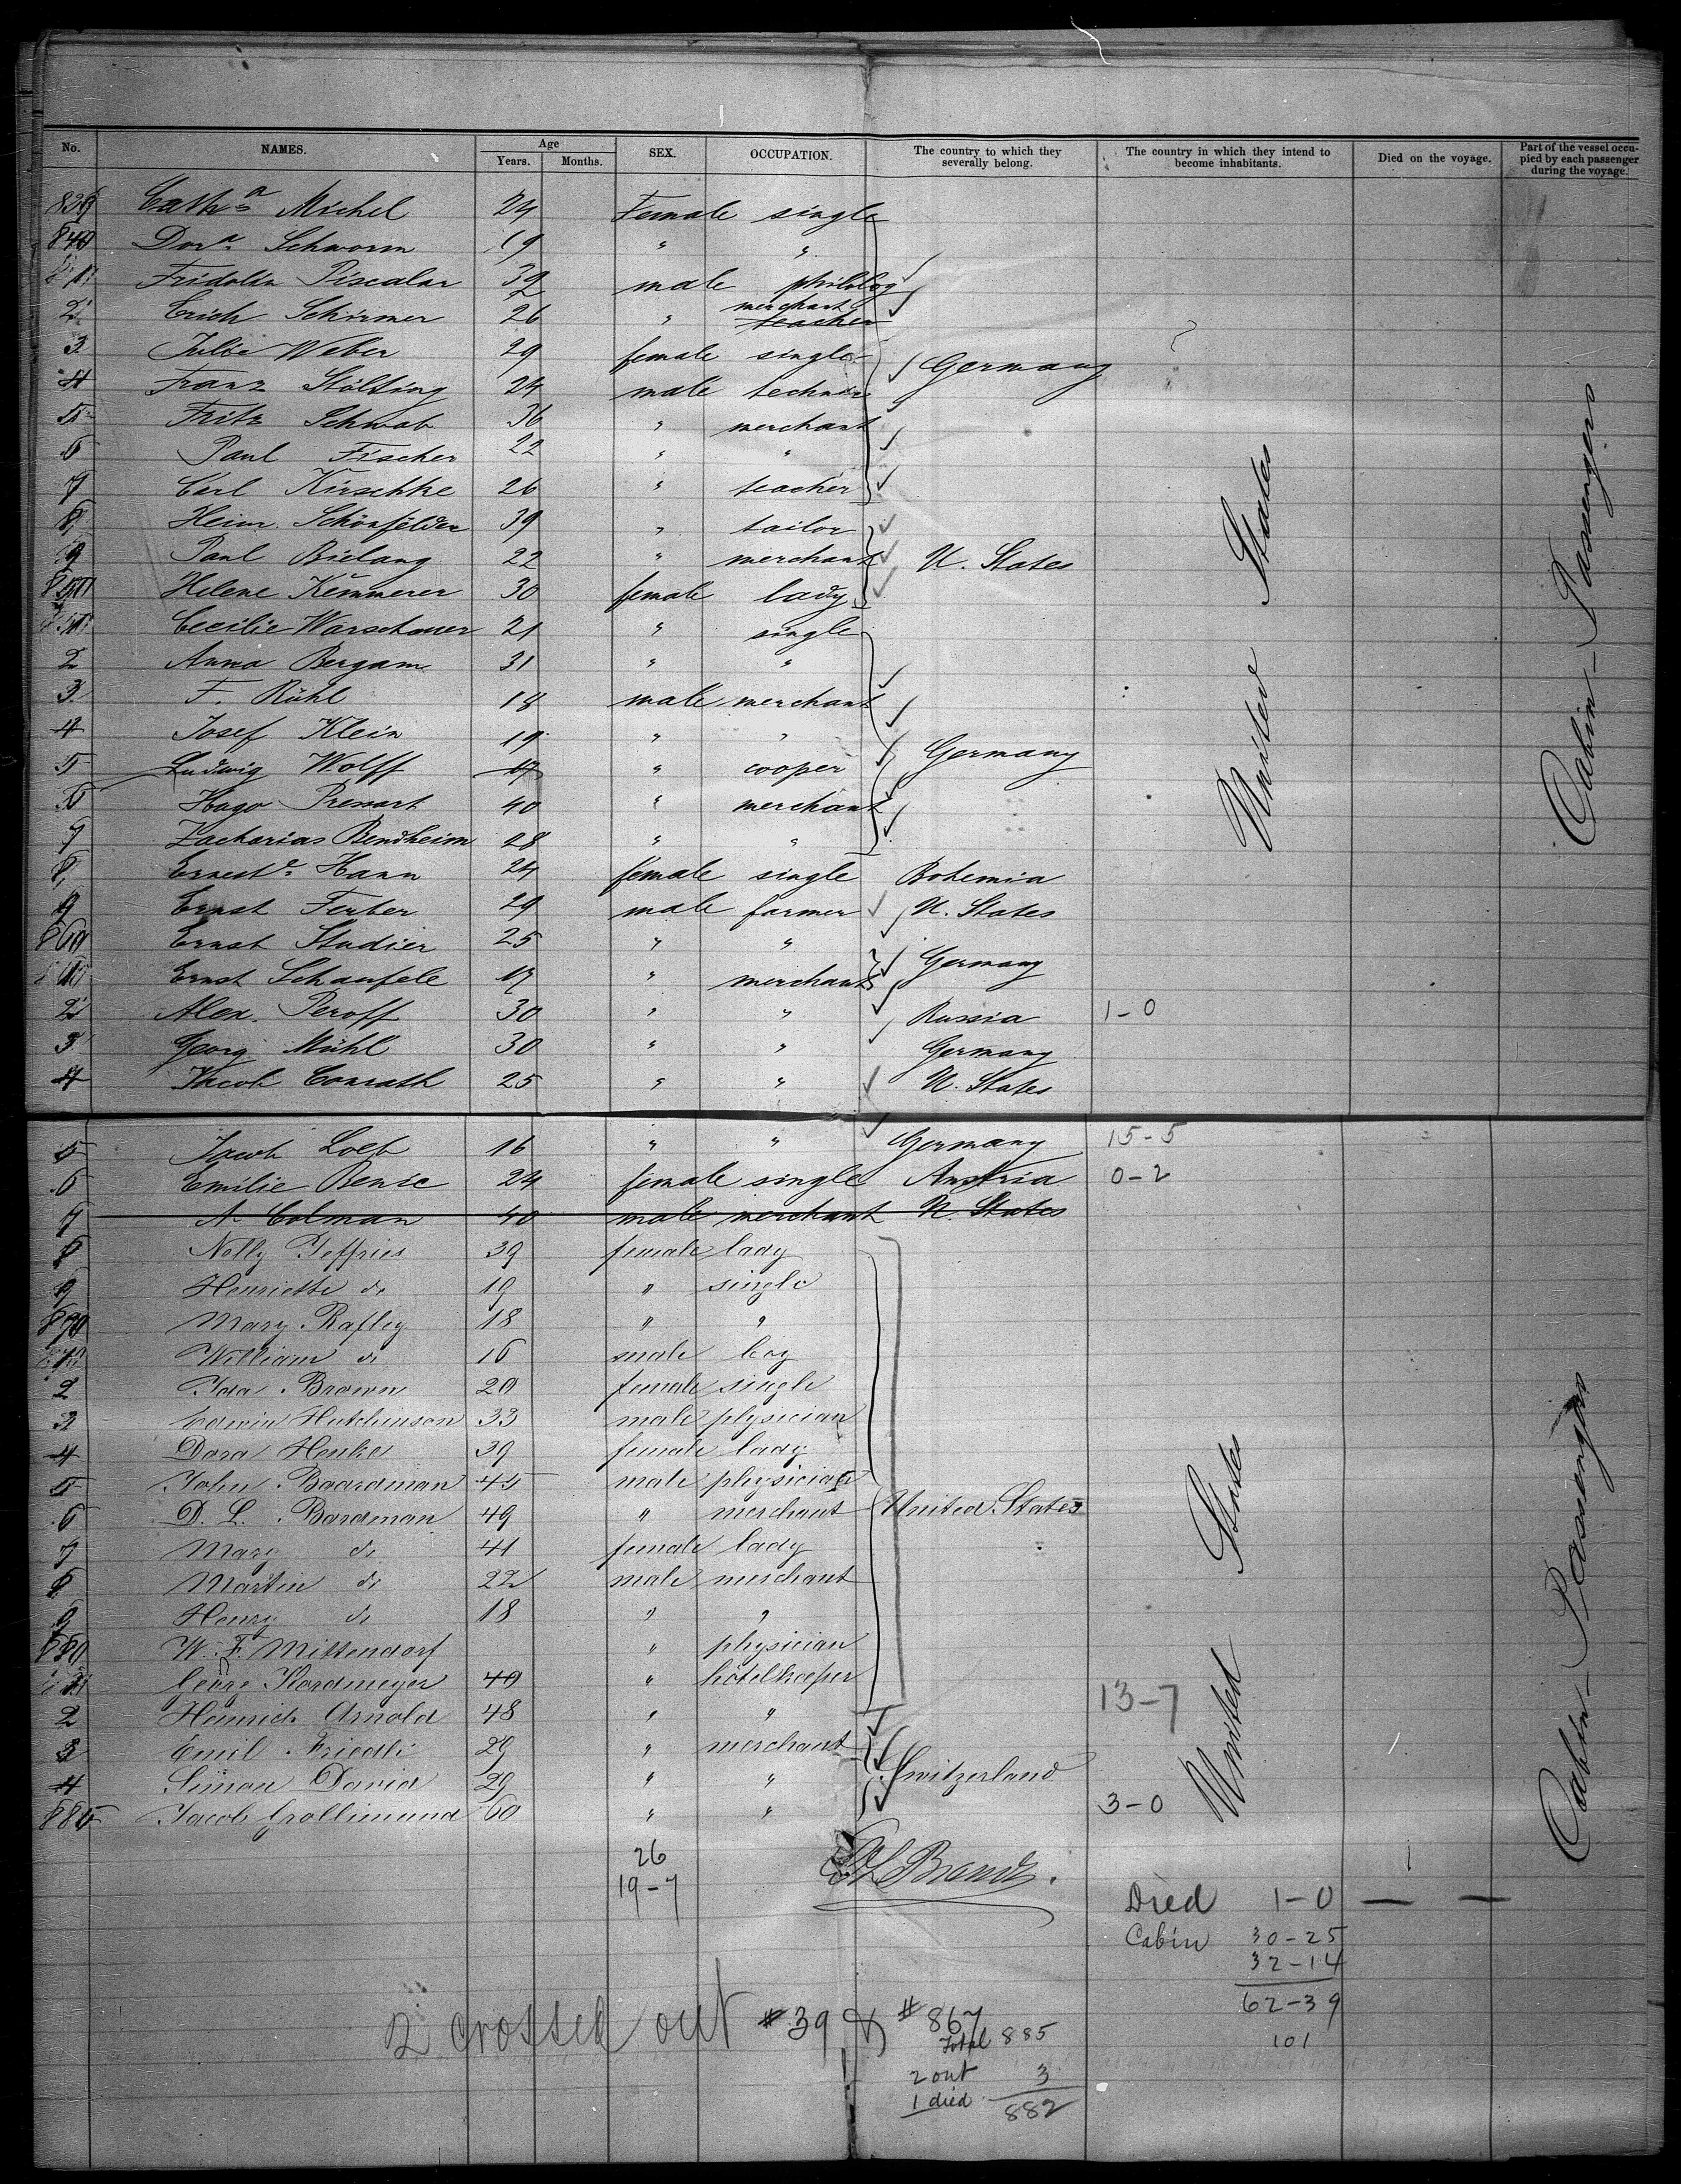 No. NAMES. Age Years. Months. SEX. OCCUPATION. The country to which they severally belong. The country in which they intend to become inhabitants. Died on the voyage. Part of the vessel occupied by each passenger during the voyage.
839 Cathª Michel 24 Female single
840 Dorª Schworm 19 " "
Fridolin Piscalar 32 male philolog
2 Erich Schirmer 26 " merchant teacher
3 Julie Weber 29 female single Germany
4 Franz Stölting 24 male
5 Fritz Schwab 36 " merchant
6 Paul Fischer 22 " "
7 Carl Kirschke 26 " teacher
8 Heinr. Schönfelder 39 " tailor
9 Paul Bielang 22 " merchant U. States
850 Helene Kemmerer 30 female lady
Cecilie Warschauer 21 " single
2 Anna Bergam 31 " "
3 F. Rühl 18 male merchant
4 Josef Klein 19 " "
5 Ludwig Wolff 17 " cooper Germany
6 Hugo 40 " merchant
7 Zacharias Bendheim 28 " "
8 Ernestᵉ Hann 24 female single Bohemia
9 Ernst Ferber 29 male farmer U. States
860 Ernst Studier 25 " "
Ernst Schaufele 17 " merchant Germany
2 Alex. Peroff 30 " " Russia 1-0
3 Georg Mühl 30 " " Germany
4 Jacob Conrath 25 " " U. States
5 Jacob Loeb 16 " " Germany 15-5
6 Emilie Bensc 24 female single Austria 0-2
7 A. Colman 40 male merchant U. States
8 Nelly Jeffries 39 female lady
9 Henriette do 19 " single
870 Mary Rafley 18 " "
William do 16 male boy
2 Ida Brown 20 female single
3 Edwin Hutchinson 33 male physician
4 Dora Henke 39 female lady
5 John Boardman 45 male physician
6 D. L. Bordman 49 " merchant United States
7 Mary do 41 female lady
8 Martin do 22 male merchant
9 Henry do 18 " "
880 W. F. Mittendorf " physician
Nordmeyer 40 " hôtelkeeper
2 Heinrich Arnold 48 " " 13-7
3 Emil Friedli 29 " merchant
4 Simon David 29 " " Switzerland
885 Jacob Grollimund 60 " " 3-0
United States
Cabin-Passengers
United States
Cabin-Passenger
26
19-7
Brandt.
Died 1-0 — —
Cabin 30-25
32-14
62-39
101
2 crossed out #39 & #867
Total 885
2 out 3
1 died
882